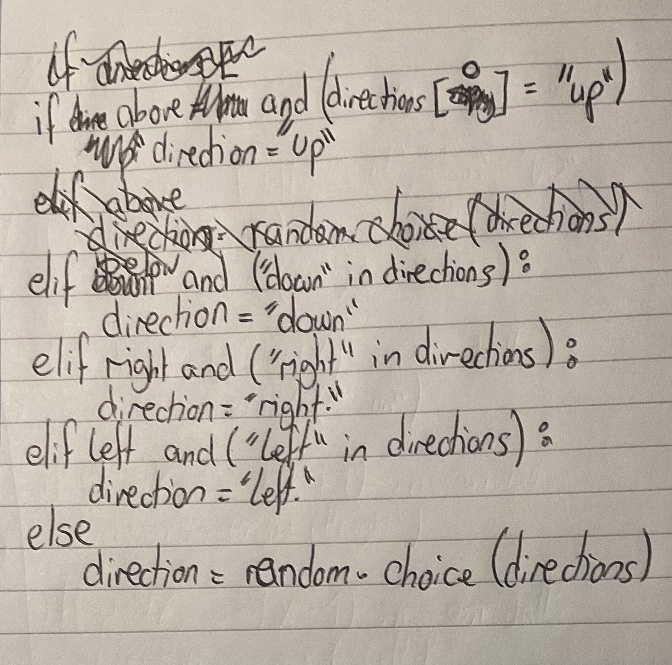 if directions[
if above and (directions [0] = "up")
direction = "up"
elif above
direction = random.choice (directions)
elif below and ("down" in directions):
direction = "down"
elif right and ("right" in directions):
direction = "right."
elif left and ("left" in directions):
direction = "left."
else
direction = random. choice (directions)